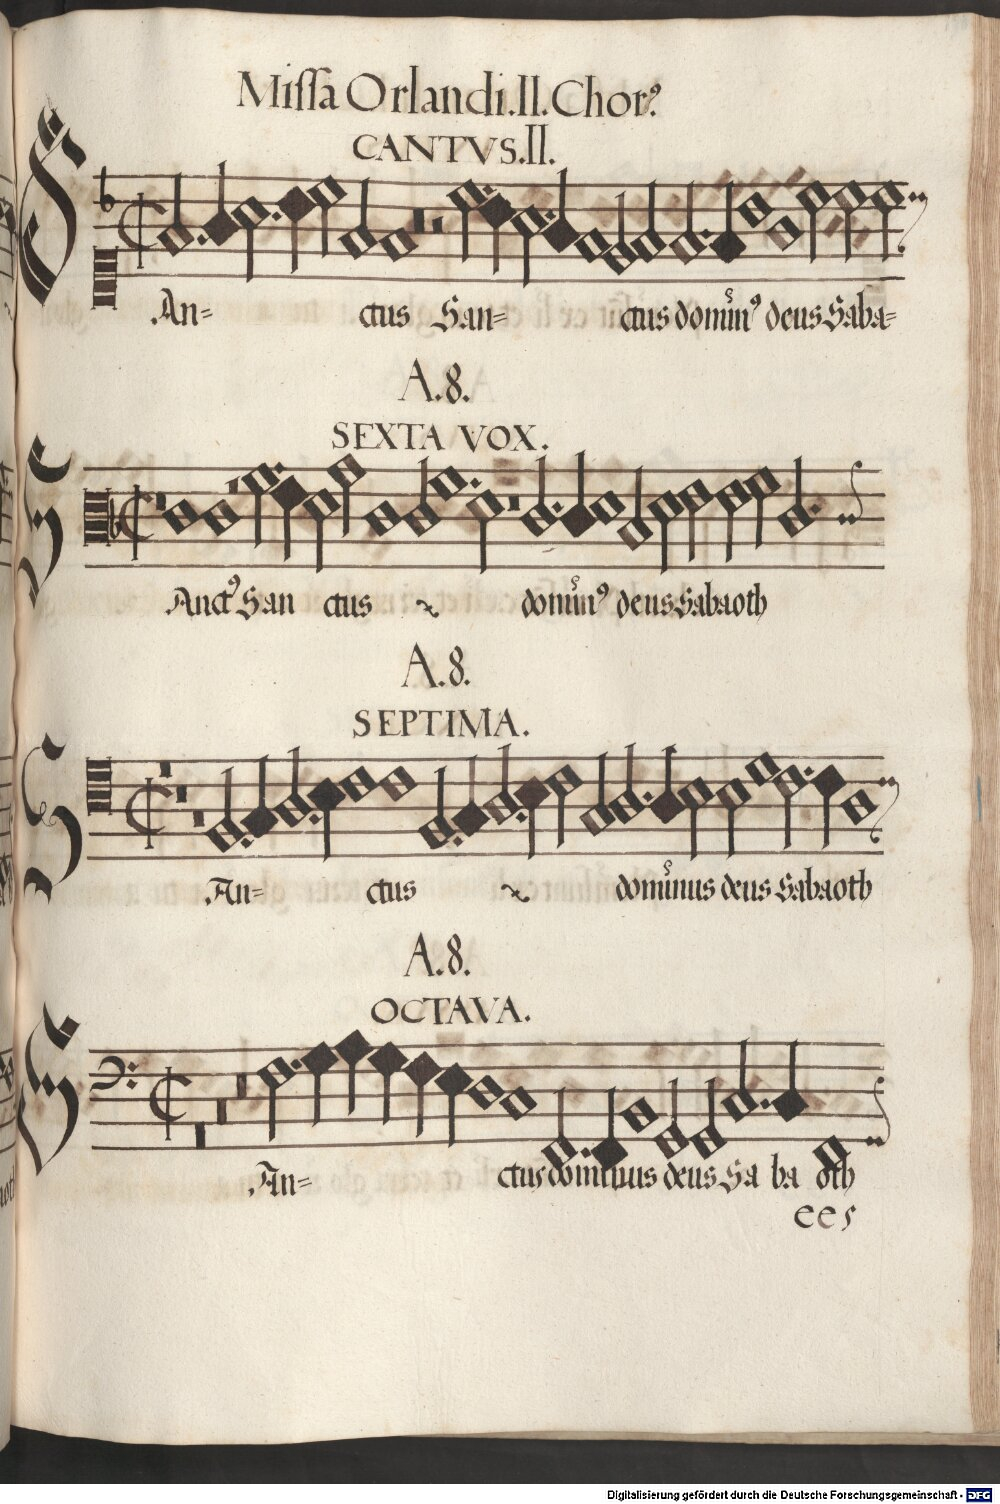 Missa Orlandi. II. Chorꝰ
CANTVS. II.
S
An= ctus San= ctus dominꝰ deus Saba=
A. 8.
SEXTA VOX.
S
Anctꝰ San ctus dominꝰ deus Sabaoth
A. 8.
SEPTIMA.
S
An= ctus dominus deus Sabaoth
A. 8.
OCTAVA.
S
An= ctus dominus deus Sa ba oth
Digitalisierung gefördert durch die Deutsche Forschungsgemeinschaft - DFG